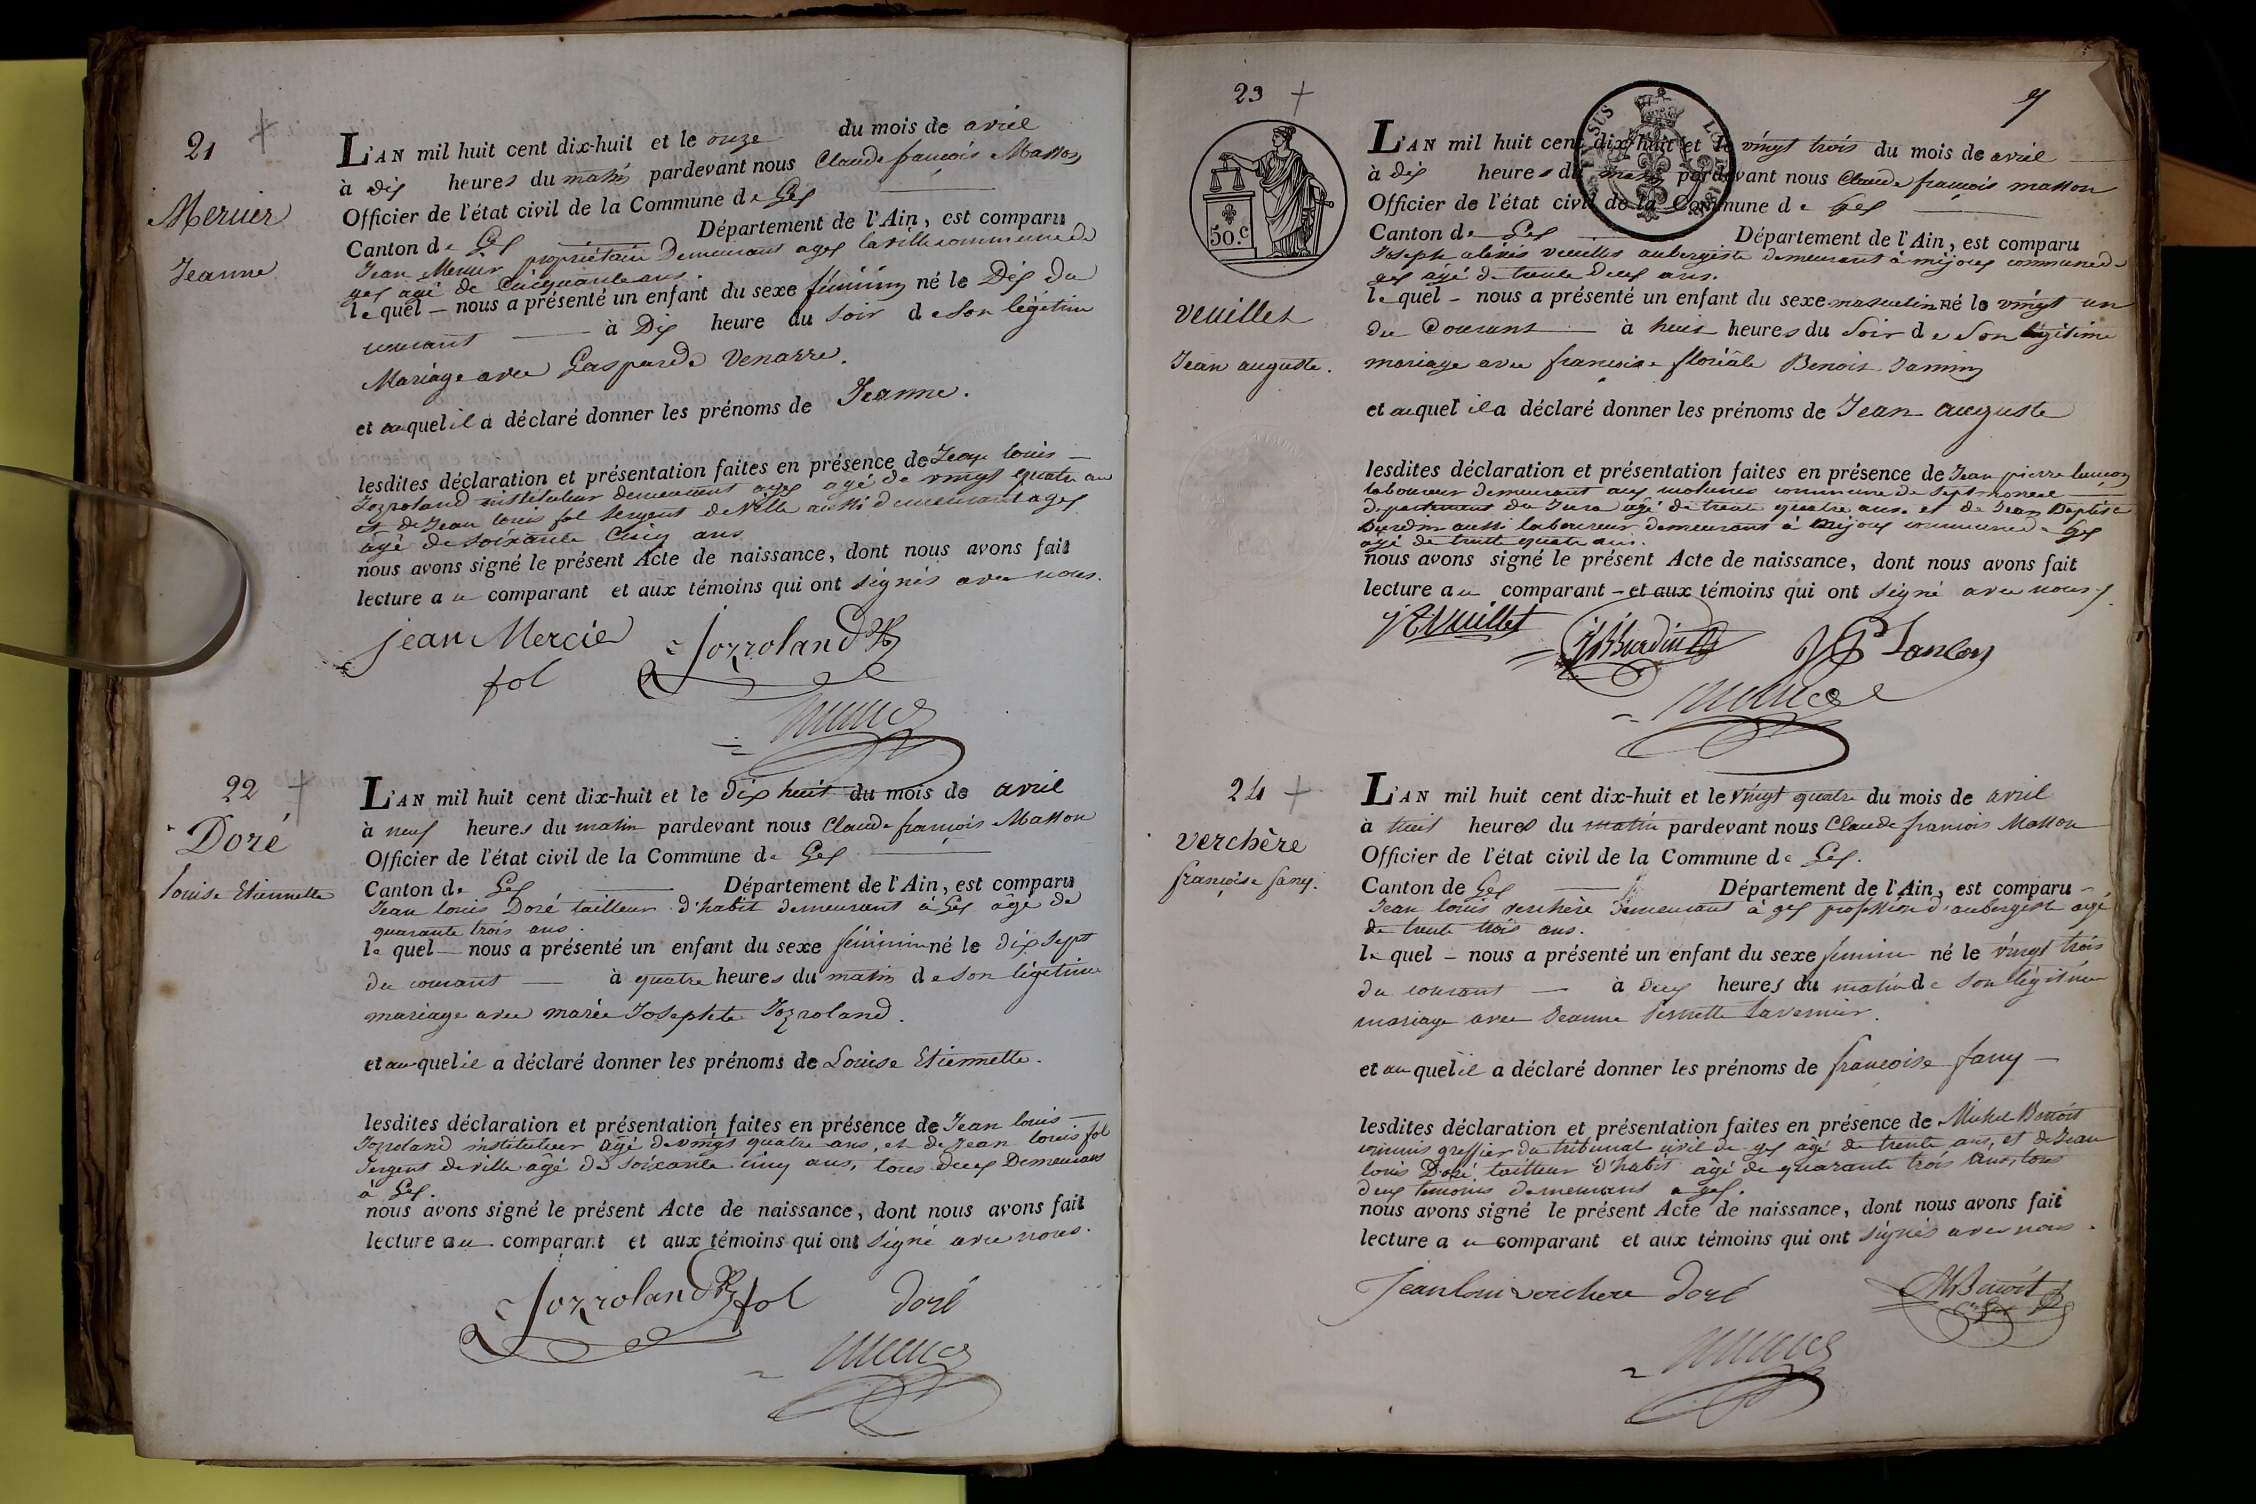 21
Mercier
Jeanne
L'AN mil huit cent dix-huit et le onze du mois de avril
à dix heures du matin pardevant nous Claude françois Masson
Officier de l'état civil de la Commune de Gex
Canton de Gex Département de l'Ain, est comparu
Jean Mercier propriétaire demeurant a gex la ville commune de
gex agé de Cinquante ans.
le quel – nous a présenté un enfant du sexe féminin né le Dix du
courant à Dix heure du soir de son légitime
Mariage avec Gasparde Venarre.
et auquel il a déclaré donner les prénoms de Jeanne.
lesdites déclaration et présentation faites en présence de Jean louis
Jozroland instituteur demeurant a gex agé de vingt quatre ans
et de Jean louis fol sergent de ville aussi demeurant a gex
âgé de soixante Cinq ans
nous avons signé le présent Acte de naissance, dont nous avons fait
lecture au comparant et aux témoins qui ont signés avec nous.
jean Mercier Jozroland
fol
22
Doré
louise Etiennette
L'AN mil huit cent dix-huit et le dix huit du mois de avril
à neuf heures du matin pardevant nous Claude françois Masson
Officier de l'état civil de la Commune de Gex
Canton de Gex Département de l'Ain, est comparu
Jean louis Doré tailleur d'habit demeurant à Gex agé de
quarante trois ans.
le quel – nous a présenté un enfant du sexe féminin né le dix sept
du courant à quatre heures du matin de son légitime
mariage avec marie Josephte Jozroland.
et auquel il a déclaré donner les prénoms de Louise Etiennette.
lesdites déclaration et présentation faites en présence de Jean louis
Jozroland instituteur âgé de vingt quatre ans, et de Jean louis fol
Sergent de ville âgé de soixante cinq ans, tous deux Demeurans
à Gex.
nous avons signé le présent Acte de naissance, dont nous avons fait
lecture au comparant et aux témoins qui ont signé avec nous.
Jozroland fol Doré
23
50.c
veuillet
Jean auguste.
L'AN mil huit cent dix-huit et le vingt trois du mois de avril
à dix heures du matin pardevant nous Claude françois masson
Officier de l'état civil de la Commune de Gex
Canton de Gex Département de l'Ain, est comparu
Joseph alexis veuillet aubergiste demeurant à mijoux commune de
gex âgé de trente deux ans.
le quel – nous a présenté un enfant du sexe masculin né le vingt un
du Courant à huit heures du Soir de Son légitime
mariage avec francoise floriale Benoit Jannin
et auquel il a déclaré donner les prénoms de Jean auguste
lesdites déclaration et présentation faites en présence de Jean pierre lançon
laboureur demeurant aux molunes commune de Sept-moncel
departement du Jura âgé de trente quatre ans. et de Jean Baptiste
Burdin aussi laboureur demeurant à mijoux commune de Gex
âgé de trente quatre ans.
nous avons signé le présent Acte de naissance, dont nous avons fait
lecture au comparant – et aux témoins qui ont signé avec nous
JBBurdin JP Lançon
24
verchère
françoise fany.
L'AN mil huit cent dix-huit et le vingt quatre du mois de avril
à huit heures du matin pardevant nous Claude francois Masson
Officier de l'état civil de la Commune de Gex.
Canton de Gex Département de l'Ain, est comparu
Jean louis verchère demeurant à gex profession d'aubergiste agé
de trente trois ans.
le quel – nous a présenté un enfant du sexe feminin né le vingt trois
du courant à deux heures du matin de son légitime
mariage avec Jeanne Pernette Tavernier.
et auquel il a déclaré donner les prénoms de francoise fany
lesdites déclaration et présentation faites en présence de Michel Benoit
commis greffier du tribunal civil de gex âgé de trente ans, et de Jean
louis Doré tailleur d'habit âgé de quarante trois ans, tous
deux temoins demeurans a gex.
nous avons signé le présent Acte de naissance, dont nous avons fait
lecture au comparant et aux témoins qui ont signés avec nous.
Jean loui verchere Doré MBenoit